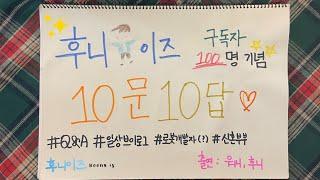 후니 이즈
구독자
100명 기념
10문 10답
#Q&A #일상브이로그 #로봇개발자(?) #신혼부부
후니이즈 Hoon is
출연 : 우니, 후니